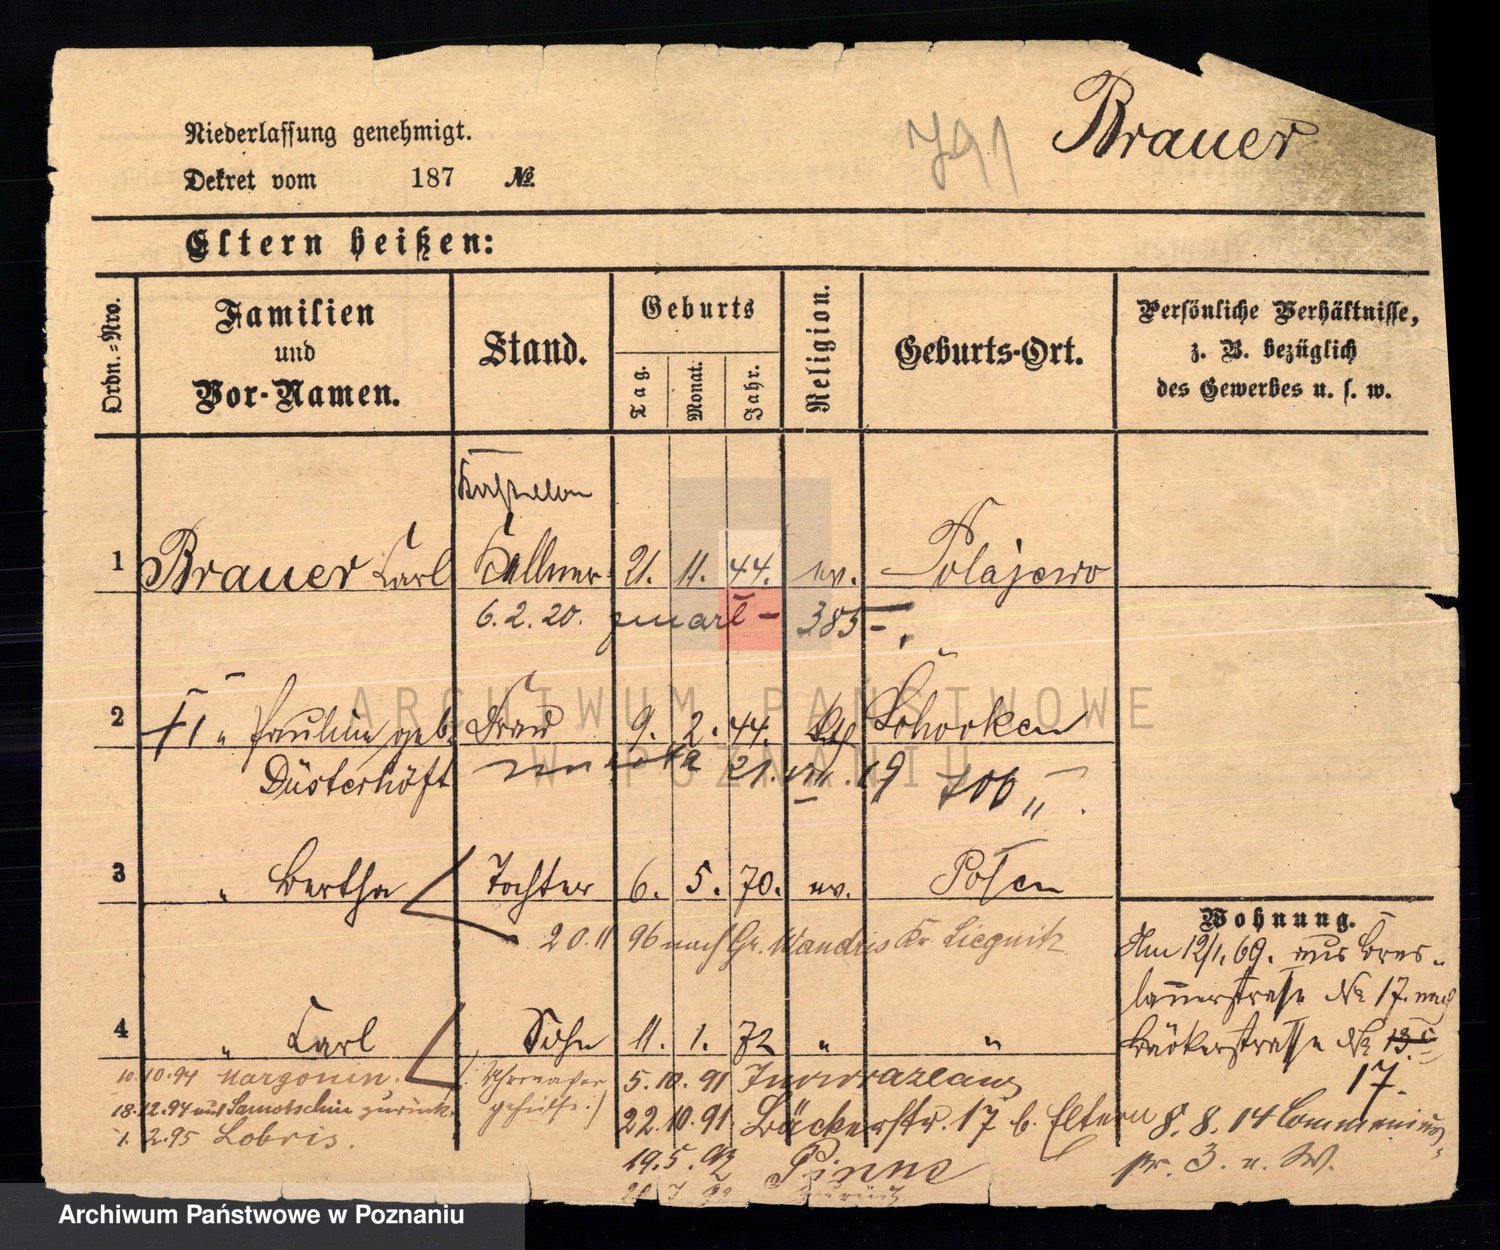 Niederlassung genehmigt.
Dekret vom 187 №
791
Brauer
Eltern heißen:
Ordn.=Nro.
Familien
und
Vor-Namen.
Stand.
Geburts
Tag.
Monat.
Jahr.
Religion.
Geburts-Ort.
Persönliche Verhältnisse,
z. B. bezüglich
des Gewerbes u. s. w.
1 Brauer Carl Kellner 21. 11. 44. ev. Polajewo
6. 2. 20. zmarł – 385
2 " Pauline geb. Frau 9. 2. 44. Schocken
Düsterhöft 21. VIII. 19 706
3 " Bertha Tochter 6. 5. 70. ev. Posen
20. 11 96 nach Gr. Wandris Kr Liegnitz
4 " Carl Sohn 11. 1. 72 " "
Wohnung.
Am 12/1. 69. aus Bres-
lauerstraße № 17. nach
Bäckerstraße № 13.
17.
8. 8. 14
10. 10. 94 Margonin.
18. 12. 94 aus Samotschin zurück.
1. 2. 95 Lobris.
Uhrmacher
gehülfe
5. 10. 91 Inowrazlaw
22. 10. 91 Bäckerstr. 17 b. Eltern
19. 5. 92 Pinne
zurück
ARCHIWUM PAŃSTWOWE
W POZNANIU
Archiwum Państwowe w Poznaniu